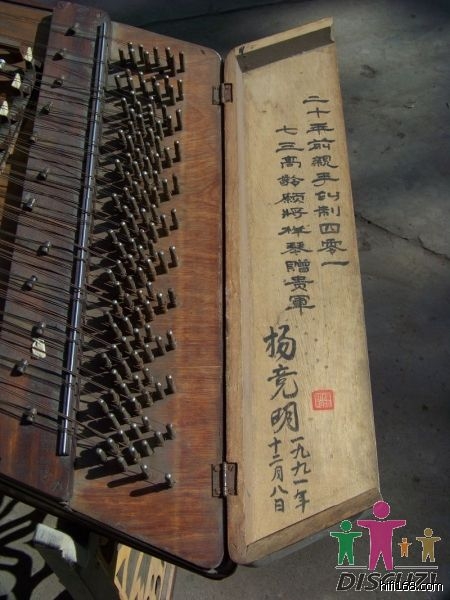 二十年前親手创制四零一
七三高齡願將样琴贈贵軍
杨竞明
一九九一年
十二月八日
DISCUZ!
hifi168.com